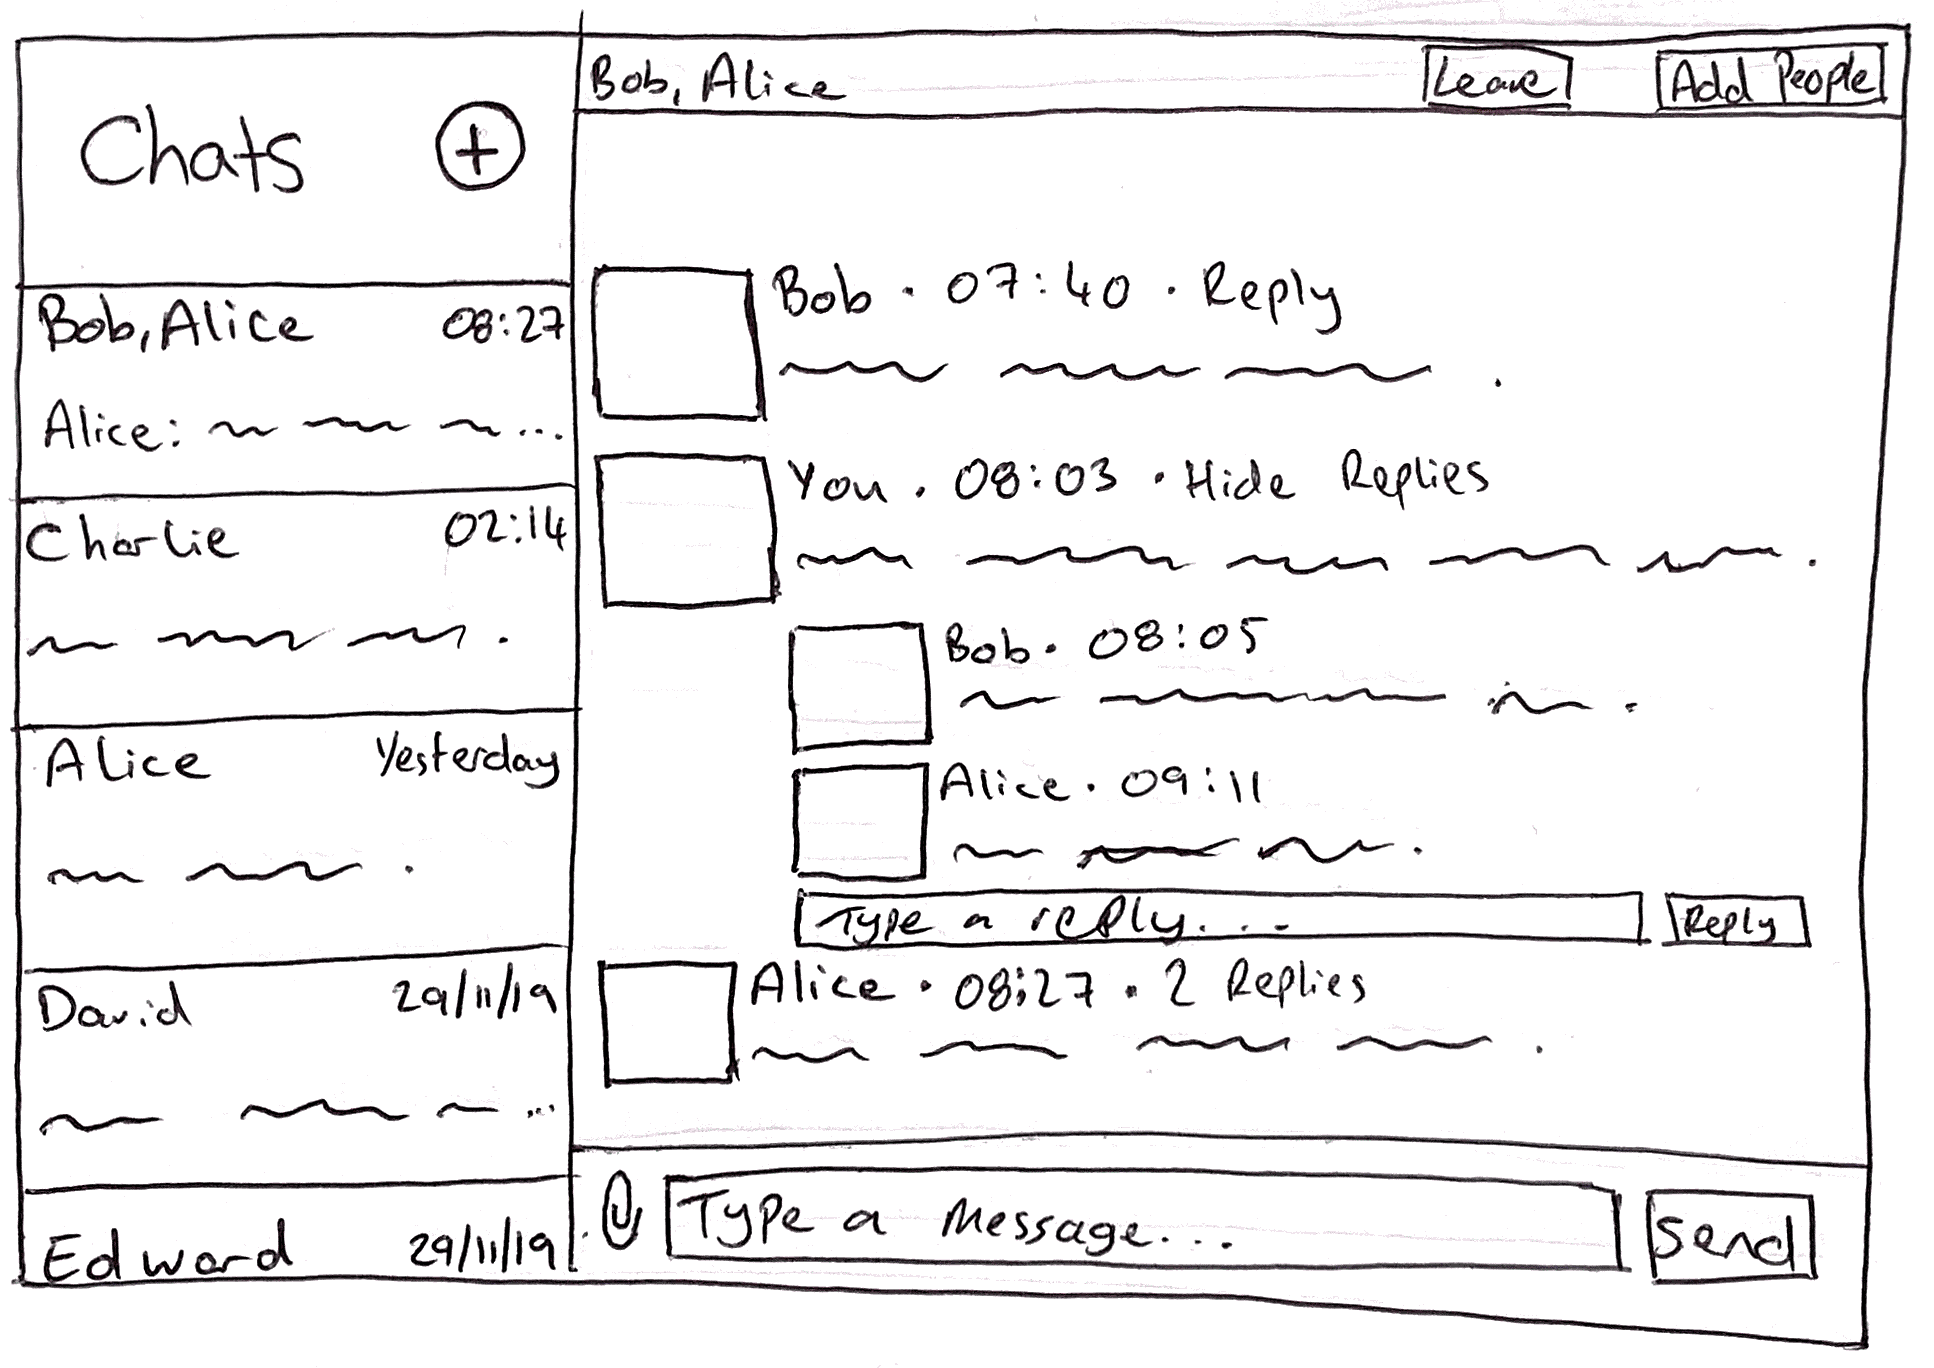 Chats +
Bob, Alice 08:27
Alice: ...
Charlie 02:14
Alice Yesterday
David 29/11/19
...
Edward 29/11/19
Bob, Alice Leave Add People
Bob · 07:40 · Reply
You · 08:03 · Hide Replies
Bob · 08:05
Alice · 09:11
Type a reply... Reply
Alice · 08:27 · 2 Replies
Type a Message... Send